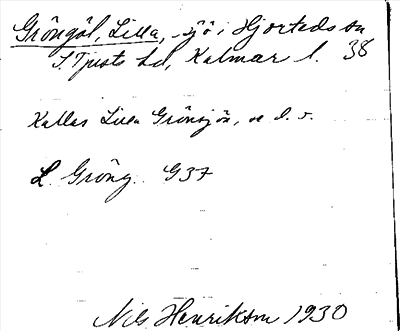 Gröngöl, Lilla, sjö i Hjorteds sn
S Tjusts hd, Kalmar l. 38
Kallas Lilla Grönsjön, se d. o.
L. Gröng. G37
Nils Henrikson 1930